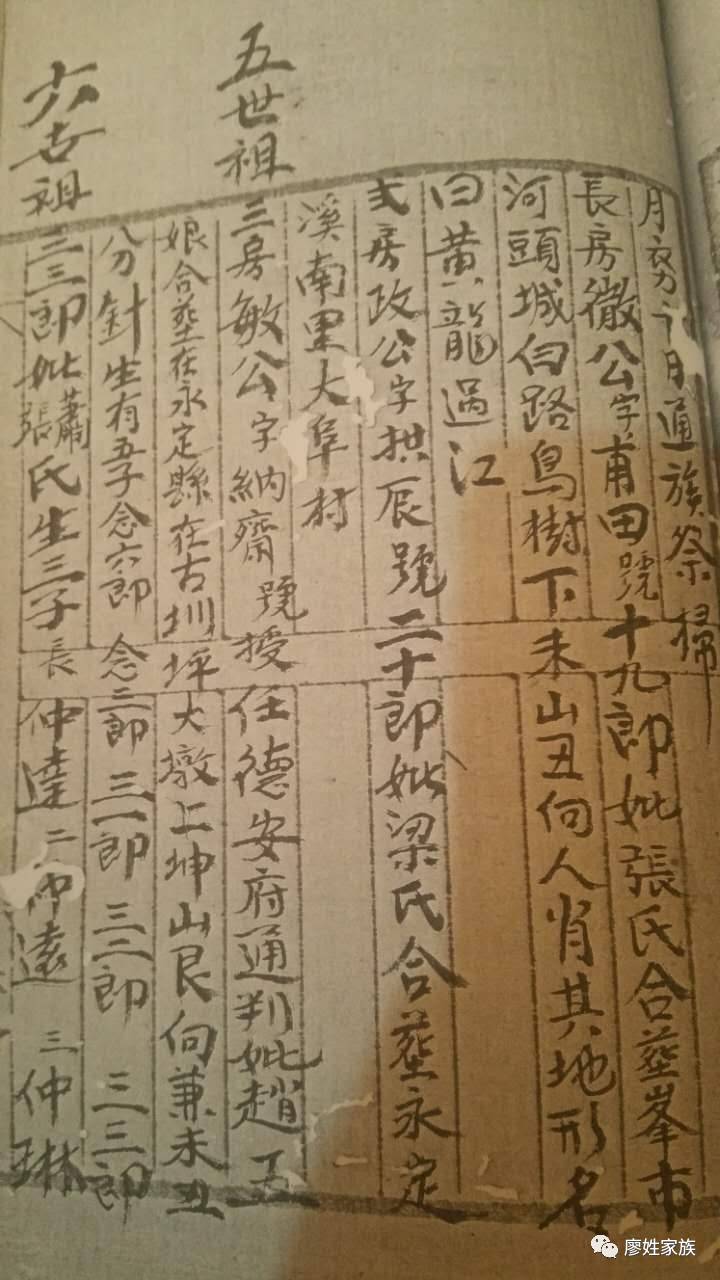 月　初十日通族祭掃
長房徹公字甫田號十九郎妣張氏合葬峯市
河頭城伯路鳥樹下未山丑向人肖其地形名
曰黃龍過江
弍房政公字拱辰號二十郎妣梁氏合葬永定
溪南里大阜村
五世祖
三房敏公字納齋號授任德安府通判妣趙五
娘合葬在永定縣在古圳坪大墩上坤山艮向兼未丑
分針生有五子念六郎念三郎三一郎三二郎三三郎
六世祖
三三郎妣蕭張氏生三子長仲達二仲遠三仲琳
廖姓家族